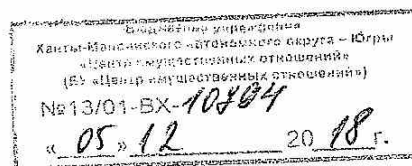 Бюджетное учреждение
Ханты-Мансийского автономного округа – Югры
«Центр имущественных отношений»
(БУ «Центр имущественных отношений»)
№13/01-ВХ-10794
« 05 » 12 20 18 г.